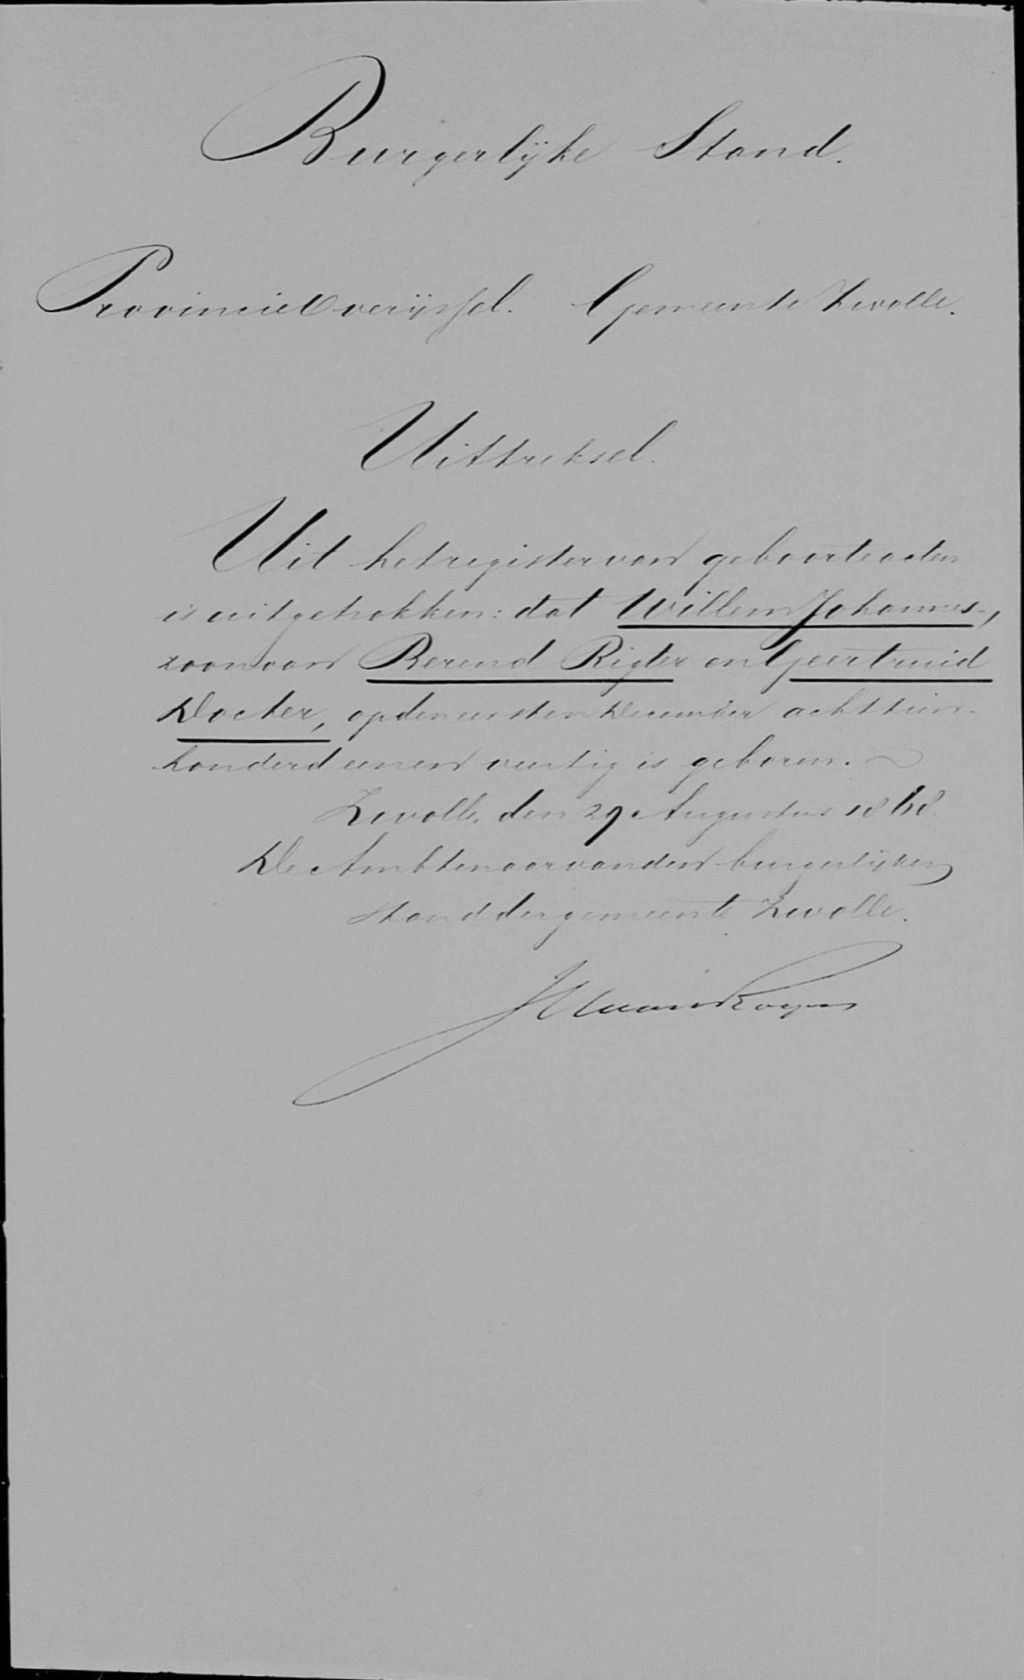 Burgerlijke Stand.
Provincie Overijssel. Gemeente Zwolle.
Uittreksel.
Uit het register van geboorteacten
is uitgetrokken: dat Willem Johannes,
zoon van Berend Rigter en Geertruid
Docter, op den eersten December achttien-
honderd een en veertig is geboren.
Zwolle, den 29 Augustus 1868.
De Ambtenaar van den burgerlijken
stand der gemeente Zwolle.